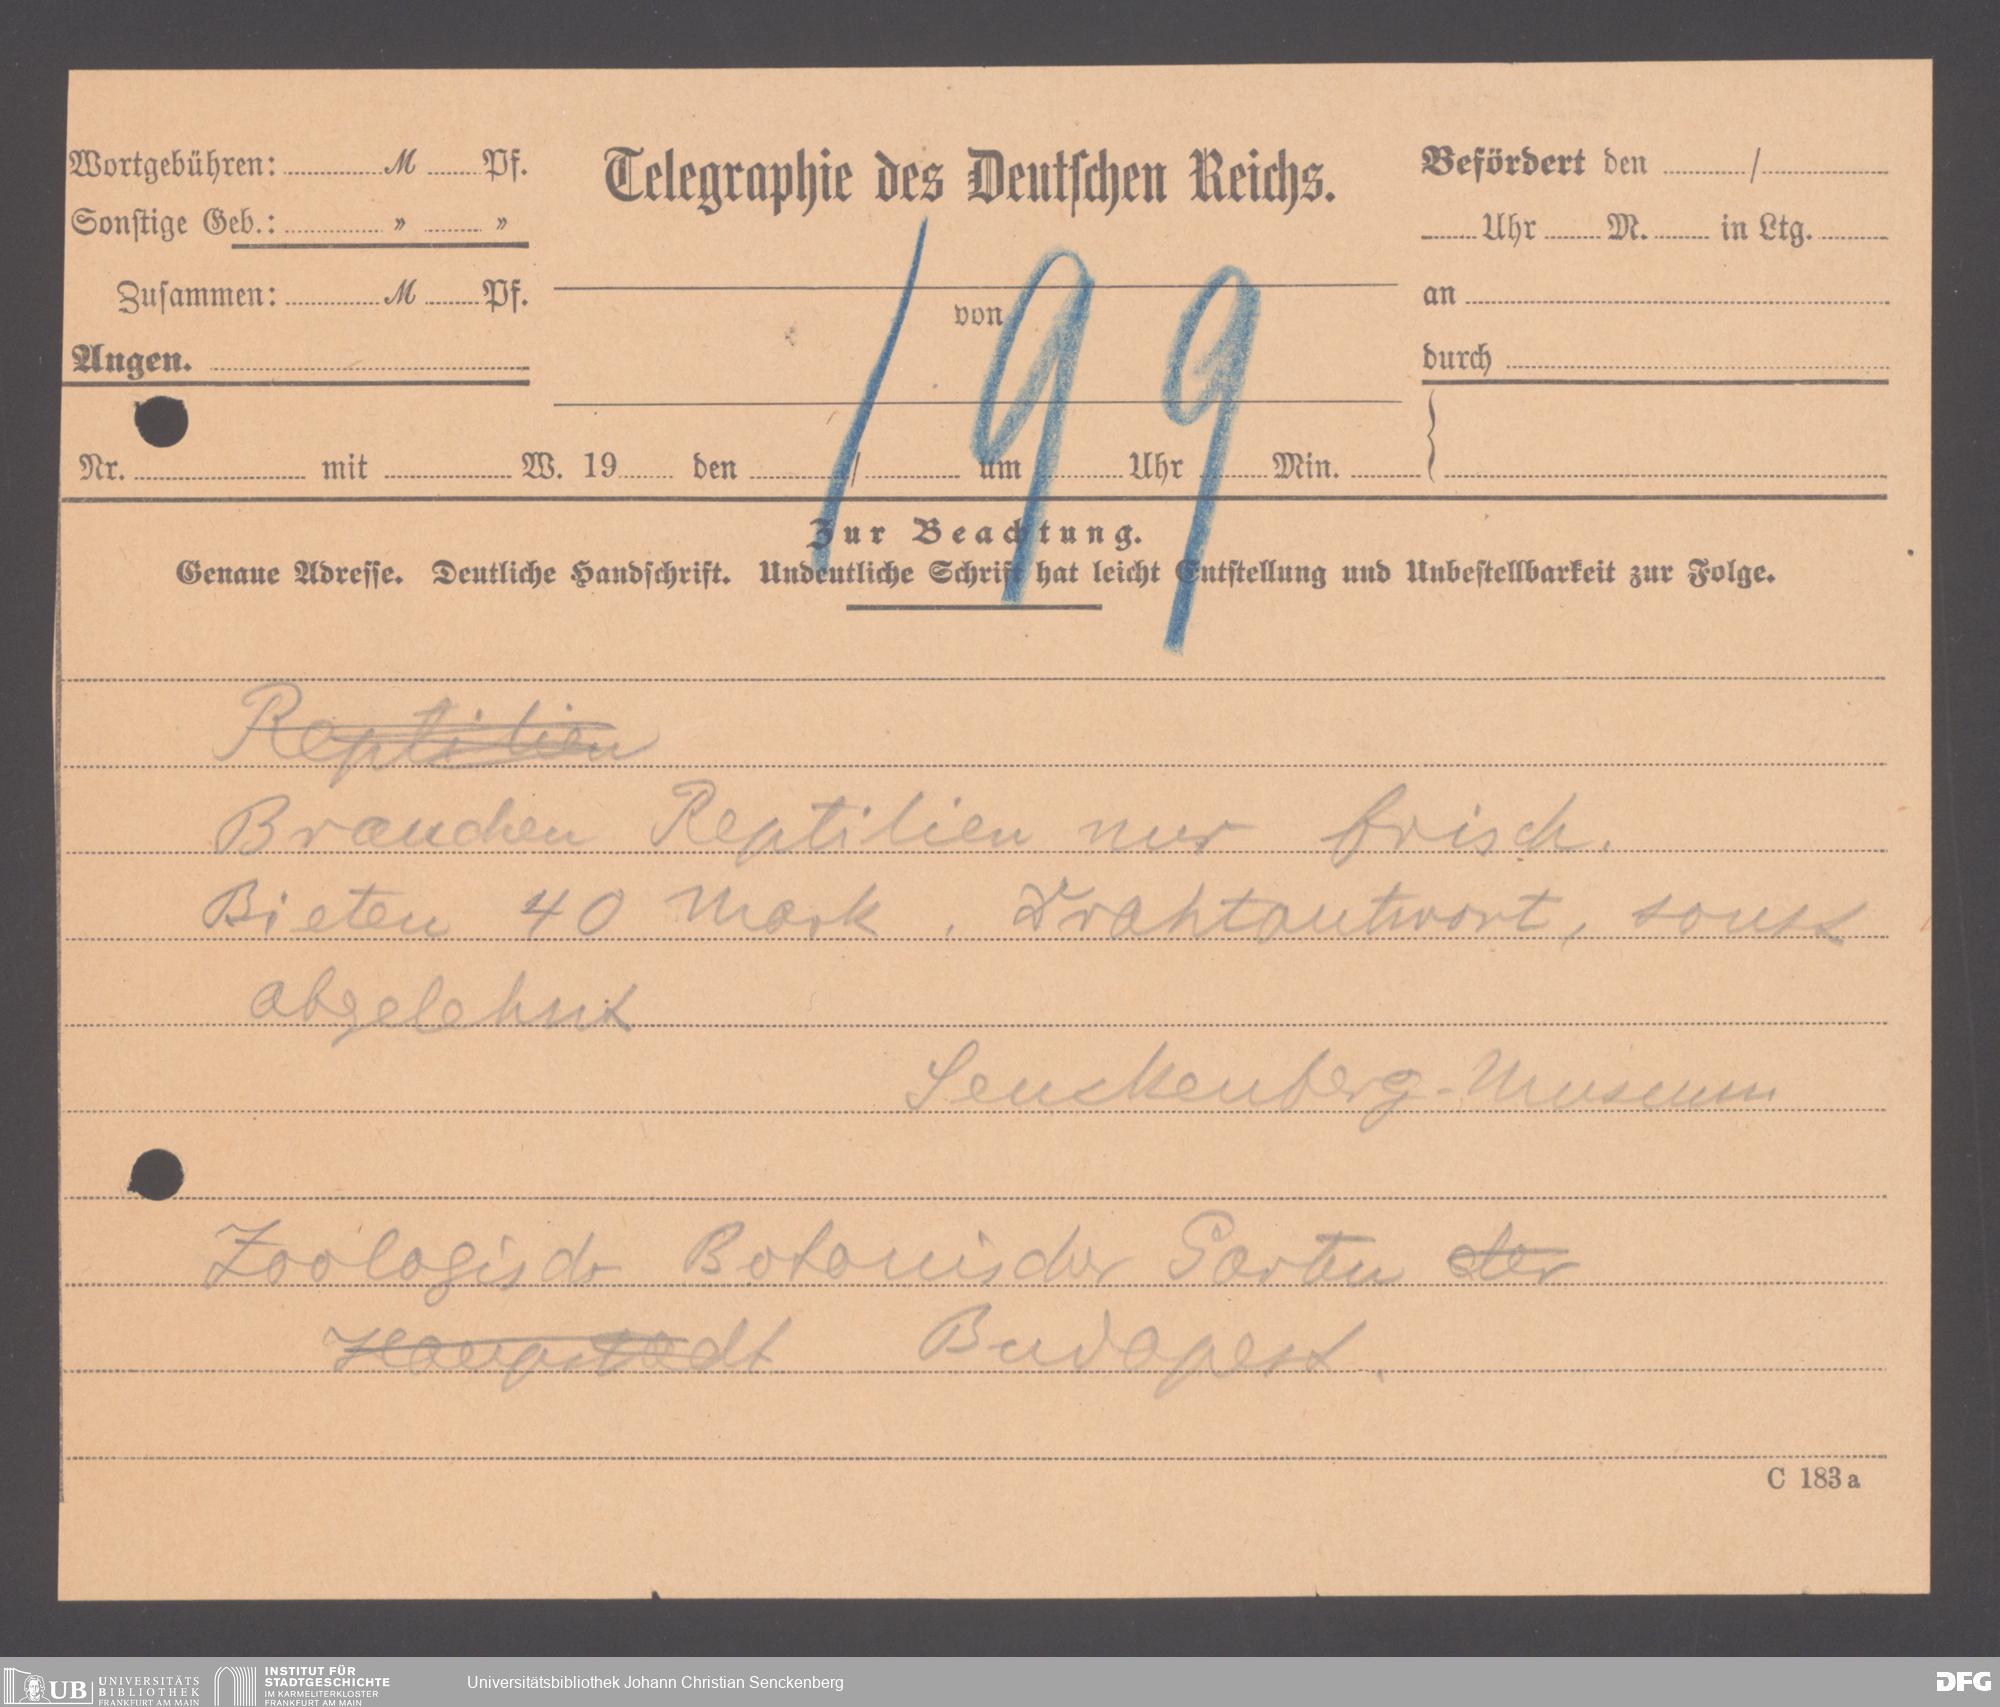 Wortgebühren: ........ M ...... Pf.
Sonstige Geb.: ........ » ...... »
Zusammen: ........ M ...... Pf.
Angen. ........
Telegraphie des Deutschen Reichs.
von
199
Befördert den ......../........
...... Uhr ...... M. ...... in Ltg. ......
an ........
durch ........
Nr. ........ mit ........ W. 19...... den ......../........ um ........ Uhr ...... Min. ......
Zur Beachtung.
Genaue Adresse. Deutliche Handschrift. Undeutliche Schrift hat leicht Entstellung und Unbestellbarkeit zur Folge.
Reptilien
Brauchen Reptilien nur frisch.
Bieten 40 Mark. Drahtantwort, sonst
abgelehnt
Senckenberg-Museum
Zoologisch Botanischer Garten der
Haupstadt Budapest.
C 183 a
UB UNIVERSITÄTS BIBLIOTHEK FRANKFURT AM MAIN
INSTITUT FÜR STADTGESCHICHTE IM KARMELITERKLOSTER FRANKFURT AM MAIN
Universitätsbibliothek Johann Christian Senckenberg
DFG